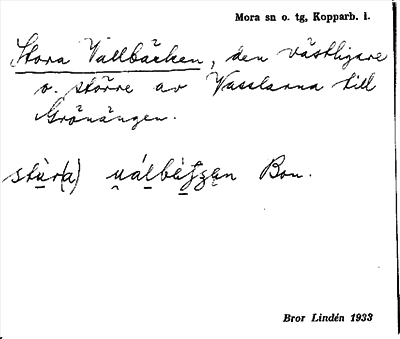 Mora sn o. tg, Kopparb. l.
Stora Vallbäcken, den västligare
o. större av Vasslarna till
Grönängen.
stu̠r(a) u̯álbä̀ʃʒen Bon.
Bror Lindén 1933